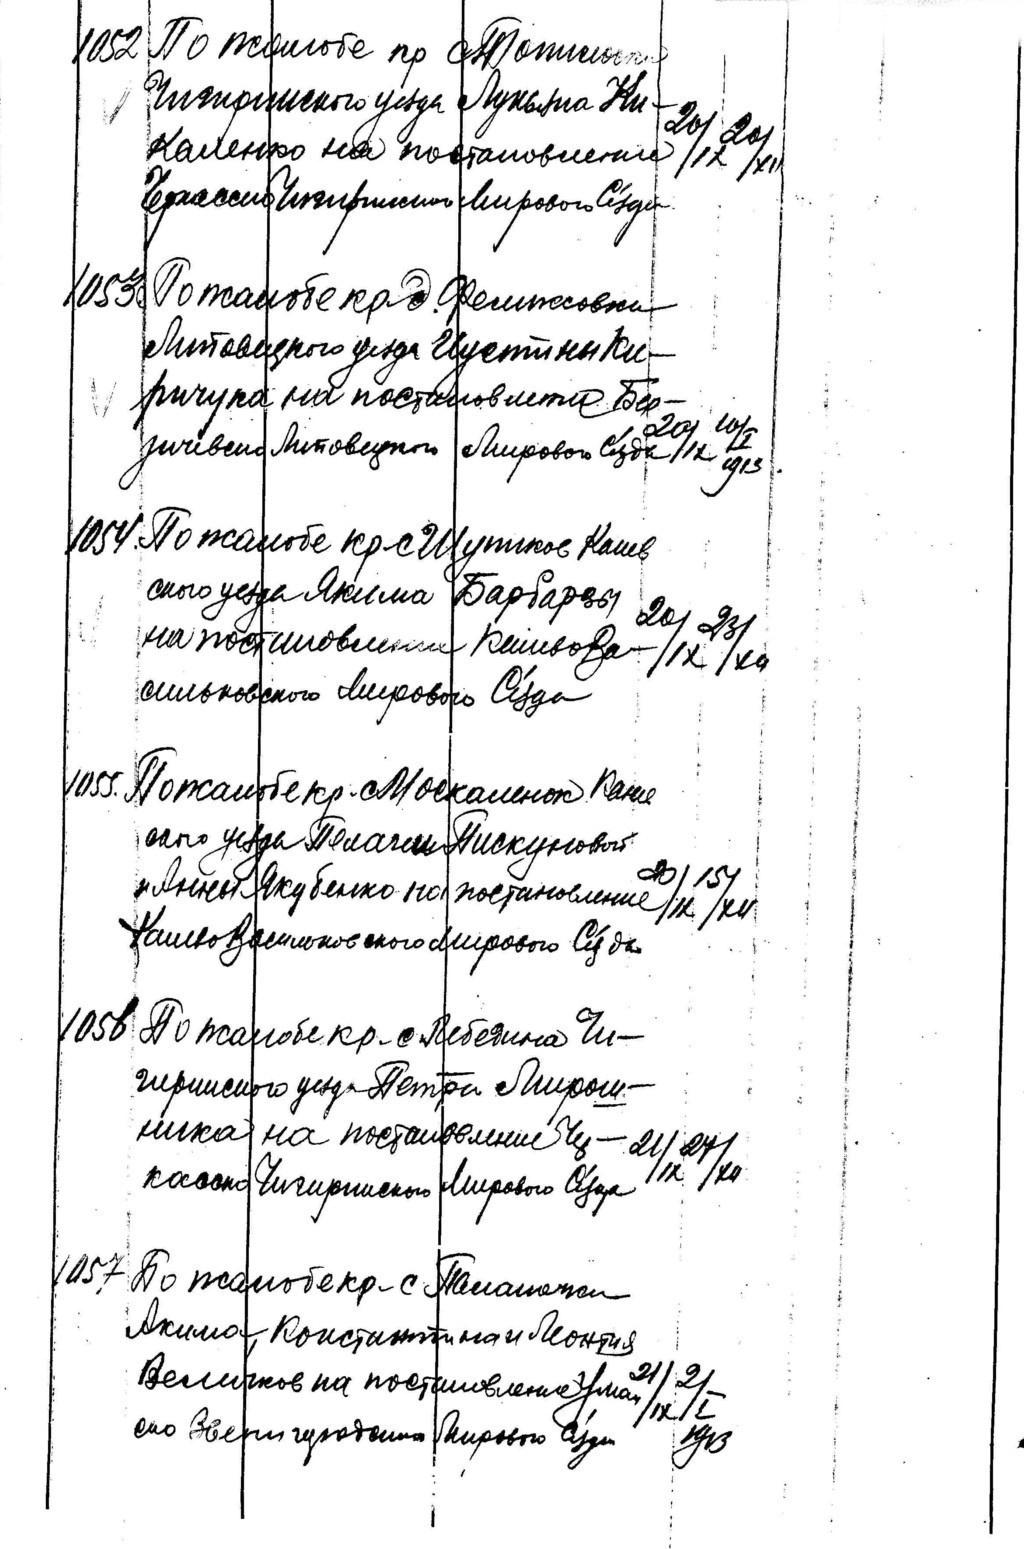 1052 По жалобе кр с
Чигиринского уезда Лукьяна Ки-
каленко на постановление 20/IX 20/XII
Черкасско Чигиринского Мирового Съезда
1053. По жалобе кр д. Феликсовки
Липовецкого уезда Иустины Ки-
ричука на постановление Бер-
дичевско Липовецкого Мирового Съезда 20/IX 10/I 1913.
1054. По жалобе кр. с Шупиков Канев
ского уезда Якима Барбарзы
на постановление Канево Ва- 20/IX 23/XII
сильковского Мирового Съезда
1055. По жалобе кр. с Москаленок Канев
ского уезда Пелагеи Пискуновой
и Анны Якубенко на постановление 20/IX 15/XII
Канево Васильковского Мирового Съезда
1056 По жалобе кр. с Лебедина Чи-
гиринского уезда Петра Мирош-
ника на постановление Чер- 21/IX 27/XII
касско Чигиринского Мирового Съезда
1057. По жалобе кр. с
Акима, Константина и Леонтия
Величков на постановление Уман 21/IX 2/I
ско Звенигородского Мирового Съезда 1913